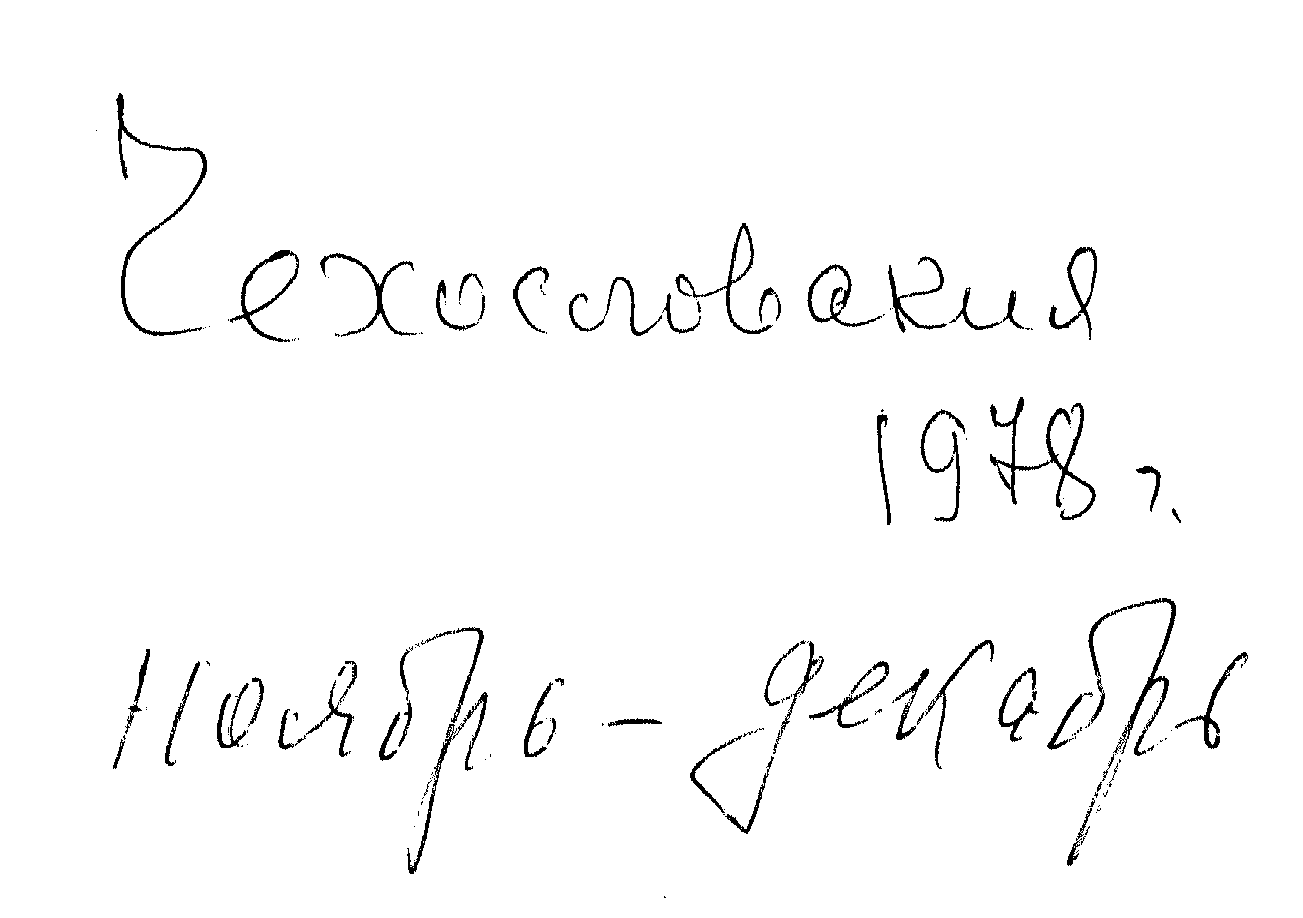 Чехословакия
1978 г.
Ноябрь – декабрь